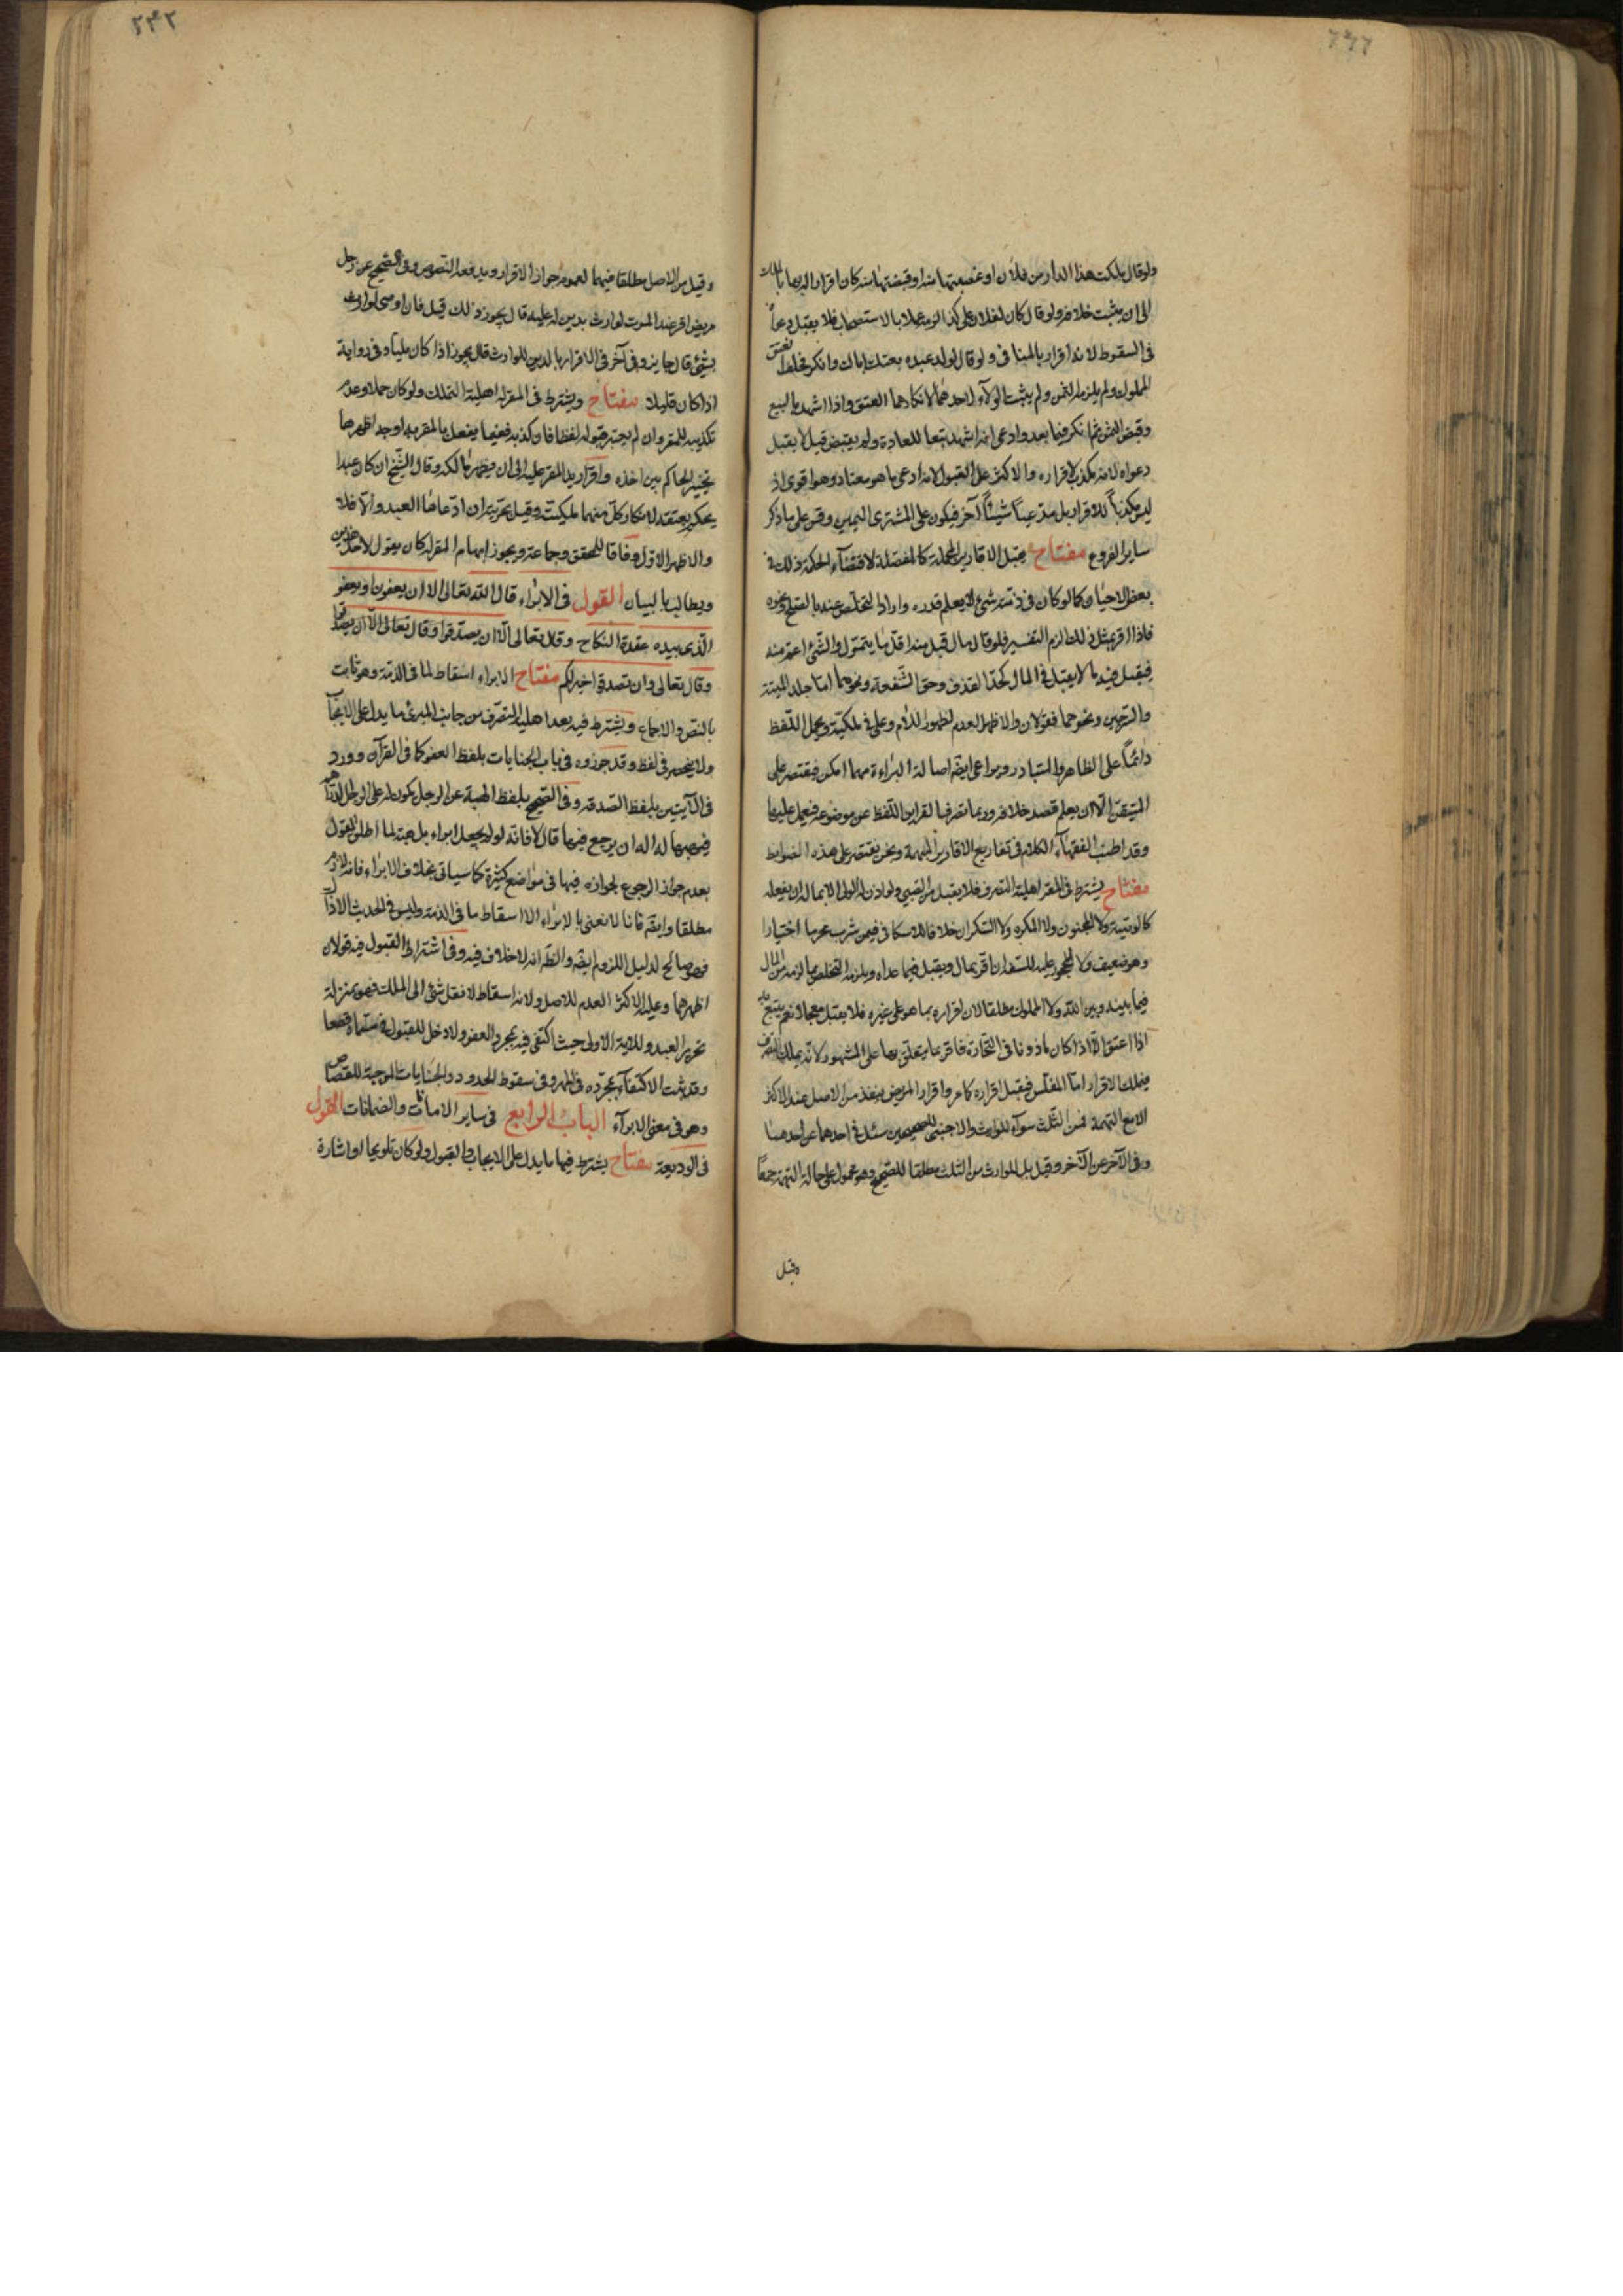 ٢٤٢
ولو قال ملكت هذا الدار من فلان او غصبتها منه او قبضتها منه كان اقرارا له بها بالملك
الى ان يثبت خلافه ولو قال كان لفلان على كذا الزم عملا بالاستصحاب فلا يقبل دعواه
فى السقوط لانه اقرار بالمنافى ولو قال لولد عبده بعتك اباك وانكر فحلف انعتق
المملوك ولم يلزمه الثمن ولم يثبت الولآء لاحدهما لانكارهما العتق واذا اشهد بالبيع
وقبض الثمن ثم انكر فيما بعد وادعى انه اشهد تبعا للعادة ولم يقبض قيل لا يقبل
دعواه لانه مكذب لاقراره والاكثر على القبول لانه ادعى ما هو معتاد وهو اقوى اذ
ليس مكذبا للاقرار بل مدعيا شيئا آخر فيكون على المشترى اليمين وقس على ما ذكر
ساير الفروع مفتاح يقبل الاقارير المجملة كالمفصلة لاقتضآء الحكمة ذلك فى
بعض الاحيان كما لو كان فى ذمته شئ لا يعلم قدره واراد التخلص عنه بالصلح ونحوه
فاذا اقر بمثل ذلك الزم التفسير فلو قال مال قبل منه اقل ما يتمول والشئ اعم منه
فيقبل فيه ما لا يقبل فى المال كحد القذف وحق الشفعة ونحوهما اما جلد الميتة
والسرجين ونحوهما فقولان والاظهر العدم لظهور اللام وعلى فى ملكيته ويحمل اللفظ
دائما على الظاهر والمتبادر ويراعى ايضه اصالة البراءة مهما امكن فيقتصر على
المتيقن الا ان يعلم قصد خلافه وربما تصرف القراين اللفظ عن موضوعه فيعمل عليها
وقد اطنب الفقهآء الكلام فى تفاريع الاقارير المبهمة ونحن نقتصر على هذه الضوابط
مفتاح يشترط فى المقر اهلية التصرف فلا يقبل من الصبى ولو اذن له الولى الا بماله ان يفعله
كالوصية ولا المجنون ولا المكره ولا السكران خلافا للاسكافى فيمن شرب محرما اختيارا
وهو ضعيف ولا المحجور عليه للسفه ان اقر بمال ويقبل فيما عداه ويلزمه التخلص مما لزمه من المال
فيما بينه وبين الله ولا المملوك مطلقا لان اقراره بما هو على غيره فلا يقبل معجلا نعم يتبع به
اذا اعتق الا اذا كان ماذونا فى التجارة فاقر بما يتعلق بها على المشهور لانه يملك التصرف
فيملك الاقرار اما المفلس فيقبل اقراره كما مر واقرار المريض ينفذ من الاصل عند الاكثر
الا مع التهمة فمن الثلث سوآء للوارث والاجنبى للصحيحين سئل فى احدهما عن احدهما
وفى الآخر عن الآخر وقيل بل للوارث من الثلث مطلقا للصحيح وهو محمول على حالة التهمة جمعا
وقيل
وقيل من الاصل مطلقا فيهما لعموم جواز الاقرار ويدفعه النصوص وفى الصحيح عن رجل
مريض اقر عند الموت لوارث بدين له عليه قال يجوز ذلك قيل فان اوصى لوارث
بشئ قال جايز وفى آخر فى الاقرار بالدين للوارث قال يجوز اذا كان مليا وفى رواية
اذا كان قليلا مفتاح ويشترط فى المقر له اهلية التملك ولو كان حملا وعدم
تكذيبه للمقر وان لم يعتبر قبوله لفظا فان كذبه ففيما يفعل بالمقر به اوجه اظهرها
تخيير الحاكم بين اخذه واقراره بيد المقر عليه الى ان يظهر مالكه وقال الشيخ ان كان عبدا
يحكم بعتقه لانكار كل منهما مليكته وقيل بحريته ان ادعاها العبد والا فلا
والاظهر الاول وفاقا للمحقق وجماعة ويجوز ابهام المقر له كان يقول لاحد هذين
ويطالب بالبيان القول فى الابراء قال الله تعالى الا ان يعفون او يعفو
الذى بيده عقدة النكاح وقال تعالى الا ان يصدقوا وقال تعالى الا ان يصدقوا
وقال تعالى وان تصدقوا خير لكم مفتاح الابراء اسقاط لما فى الذمة وهو ثابت
بالنص والاجماع ويشترط فيه بعد اهلية التصرف من جانب المبرئ ما يدل على الايجاب
ولا ينحصر فى لفظ وقد جوزوه فى باب الجنايات بلفظ العفو كما فى القرآن وورد
فى الآيتين بلفظ الصدقة وفى الصحيح بلفظ الهبة عن الرجل يكون له على الرجل الدراهم
فيهبها له اله ان يرجع فيها قال لا فانه لو لم يجعل ابراء بل هبة لما اطلق القول
بعدم جواز الرجوع لجوازه فيها فى مواضع كثيرة كما سياتى بخلاف الابراء فانه لازم
مطلقا وايضه فانا لا نعنى بالابراء الا اسقاط ما فى الذمة وليس فى الحديث الا ذلك
فهو صالح لدليل اللزوم ايضه والظ انه لا خلاف فيه وفى اشتراط القبول فيه قولان
اظهرهما وعليه الاكثر العدم للاصل ولانه اسقاط لا نقل شئ الى الملك فهو بمنزلة
تحرير العبد وللآية الاولى حيث اكتفى فيه بمجرد العفو ولا دخل للقبول فى مسماه قطعا
وقد ثبت الاكتفآء بمجرده فى المهر وفى سقوط الحدود والجنايات الموجبة للقصاص
وهو فى معنى الابرآء الباب الرابع فى ساير الامانات والضمانات القول
فى الوديعة مفتاح يشترط فيها ما يدل على الايجاب والقبول ولو كان تلويحا او اشارة